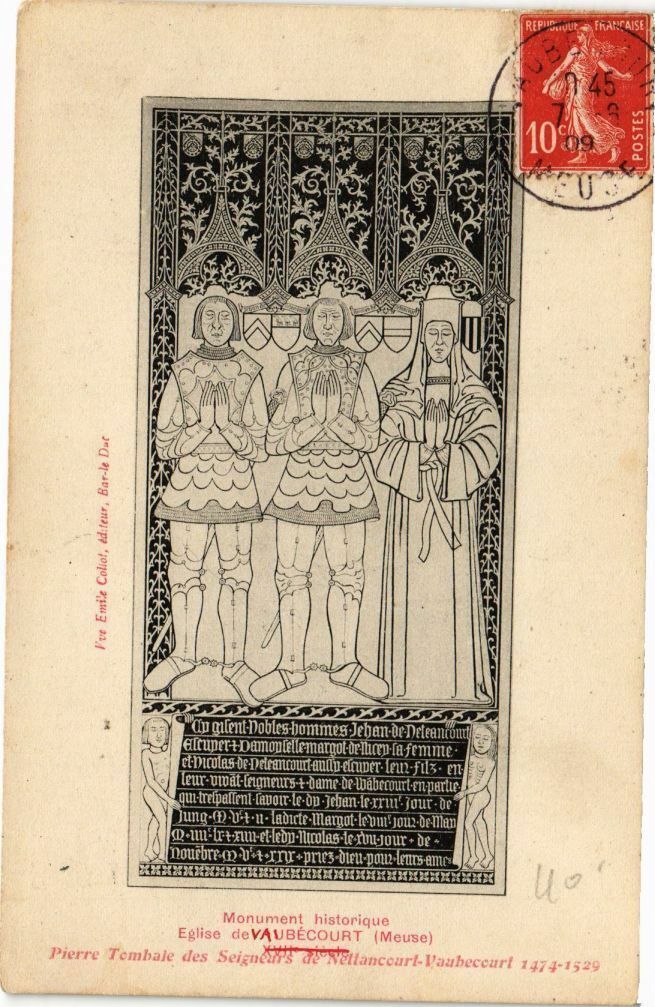 REPUBLIQUE FRANÇAISE
10c
POSTES
45
7
09
MEUSE
Vve Emile Collot, éditeur, Bar-le Duc
Cy gisent Nobles hommes Jehan de Neteancourt
Escuyer & Damoyselle margot de sa femme
et Nicolas de Neteancourt aussy escuyer leur filz en
leur vivāt seigneurs & dame de wābecourt en partie
qui trespassent savoir le dy Jehan le xxiiie Jour de
Jung ladicte Margot le Jour de May
et ledy Nicolas le xvu jour de
Nouēbre priez dieu pour leurs ames
40
Monument historique
Eglise de VAUBÉCOURT (Meuse)
XVIIe siècle
Pierre Tombale des Seigneurs de Nettancourt-Vaubecourt 1474-1529